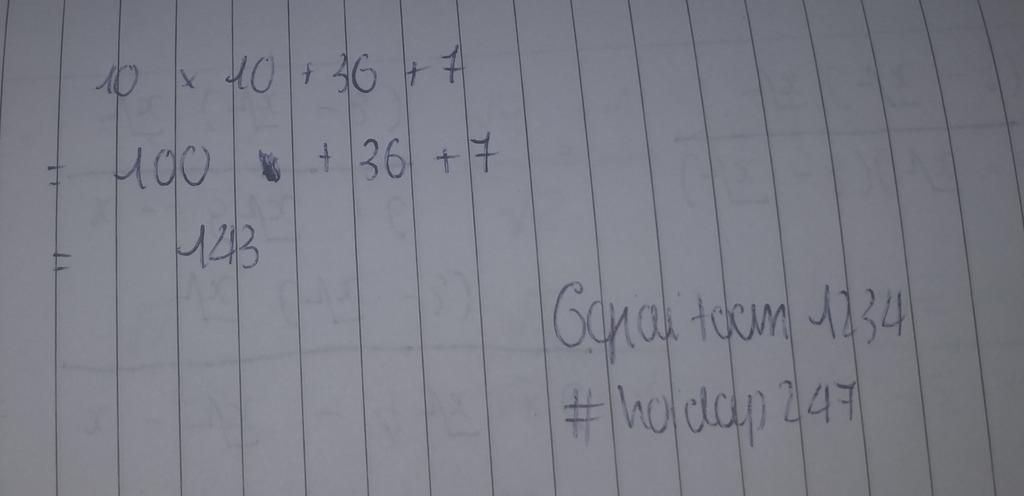 10 x 10 + 36 + 7
= 100 + 36 + 7
= 143
team 1234
# hoidap247